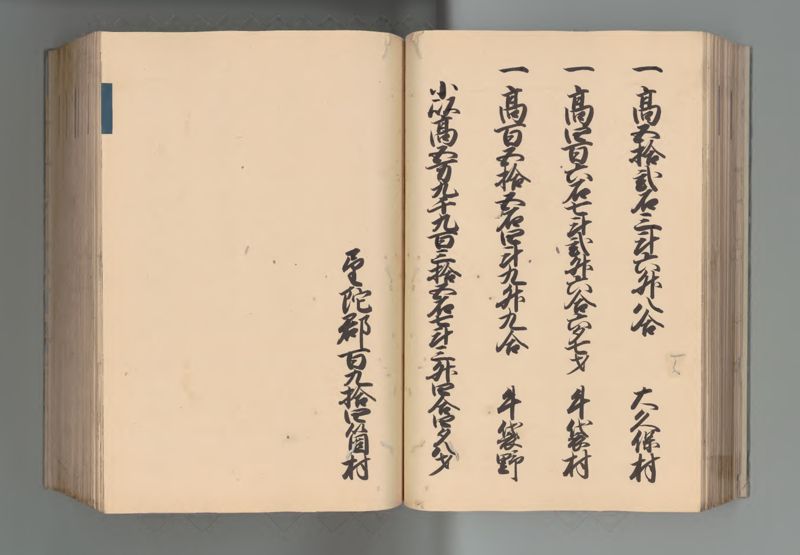 一 高五拾弐石三斗六升八合 大久保村
一 高四百六石七斗弐升六合六夕七才 斗袋村
一 高百五拾五石四斗九升九合 斗袋野
小以高五万九千九百三拾五石七斗三升四合四夕八才
郡百九拾四箇村